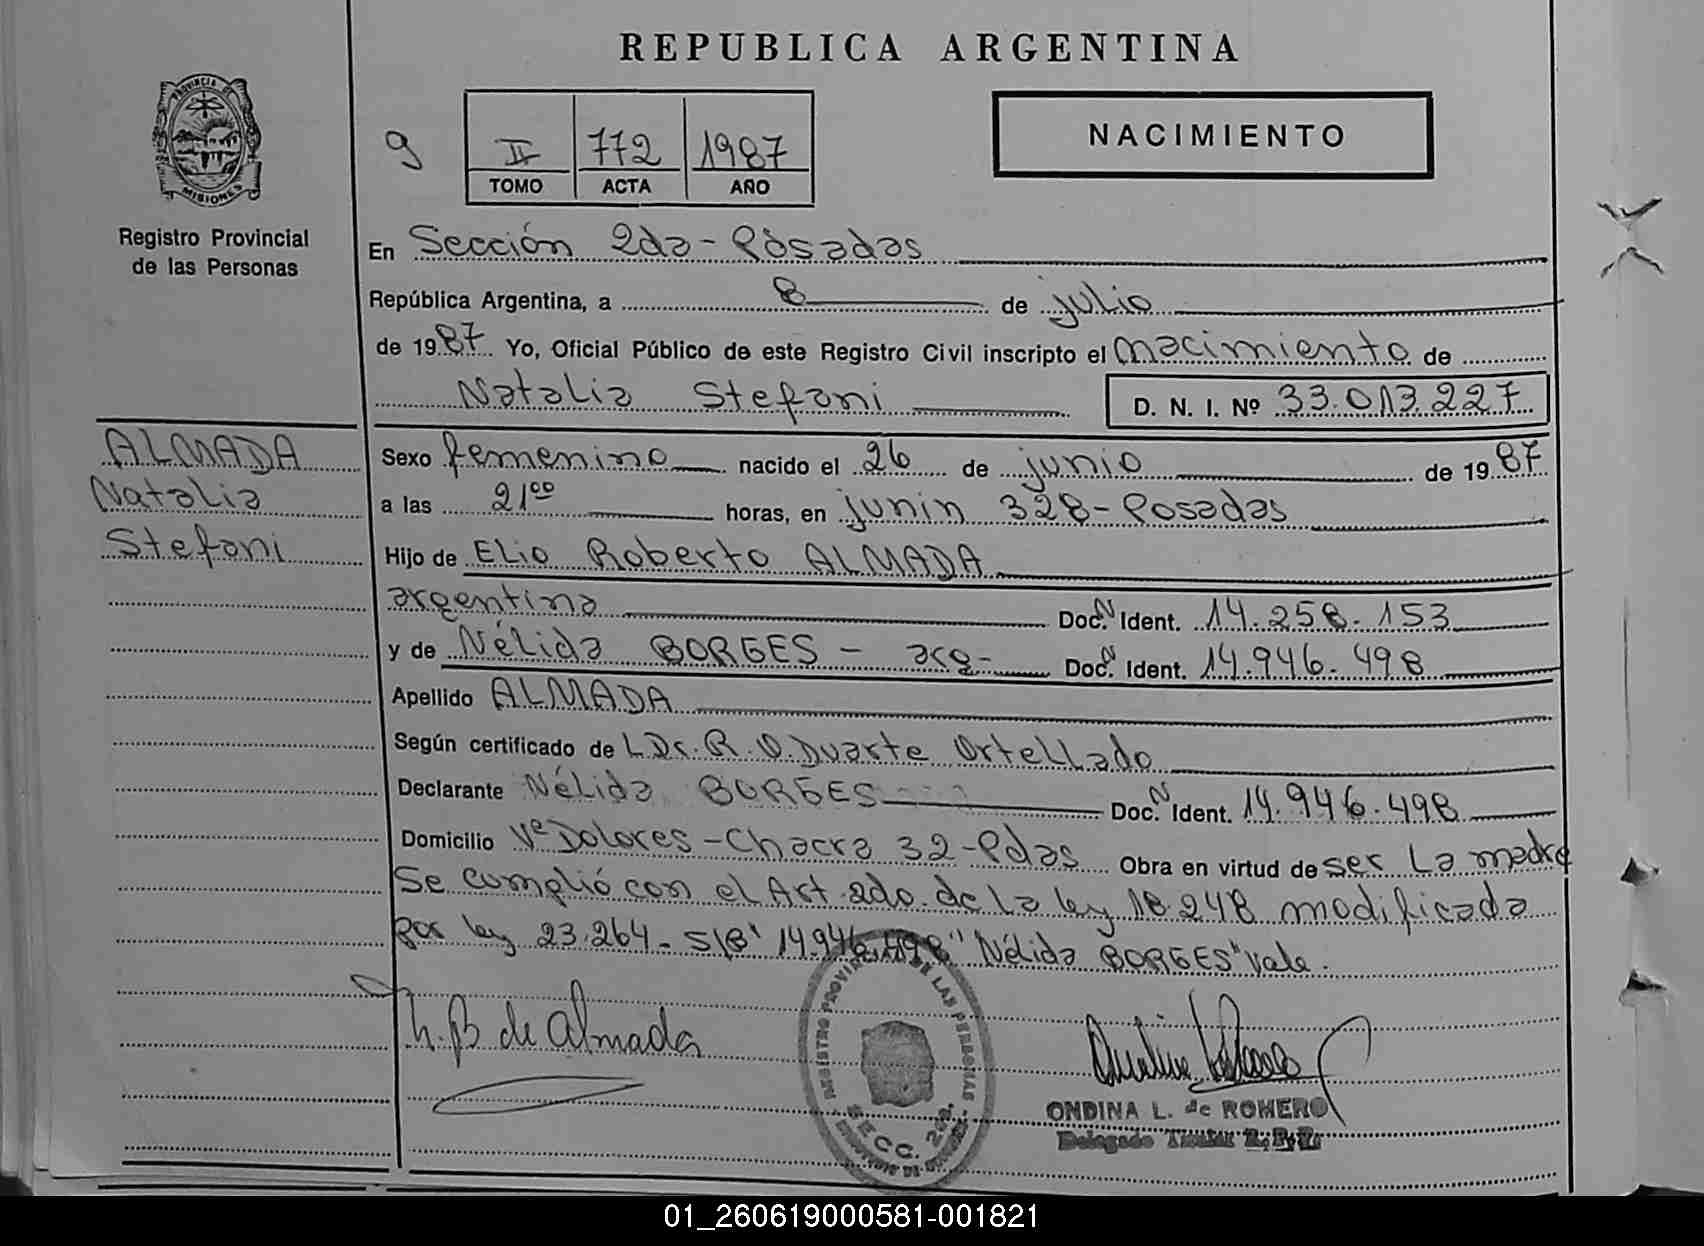 REPUBLICA ARGENTINA
PROVINCIA DE MISIONES
Registro Provincial
de las Personas
9
II 772 1987
TOMO ACTA AÑO
NACIMIENTO
En Sección 2da - Posadas
República Argentina, a 8 de julio
de 1987 Yo, Oficial Público de este Registro Civil inscripto el nacimiento de
Natalia Stefani D. N. I. Nº 33.013.227
ALMADA
Natalia
Stefani
Sexo femenino nacido el 26 de junio de 1987
a las 21⁰⁰ horas, en junin 328 - Posadas
Hijo de Elio Roberto ALMADA
argentina Doc. N Ident. 14.258.153
y de Nélida BORGES - arg - Doc. N Ident. 14.946.498
Apellido ALMADA
Según certificado de L Dr. R. O. Duarte Ortellado
Declarante Nélida BORGES Doc. N Ident. 14.946.498
Domicilio Vª Dolores - Chacra 32 - Pdas Obra en virtud de ser La madre
Se cumplió con el Art. 2do. de La ley 18.248 modificada
por ley 23.264 - S/B "14.946.498" "Nélida BORGES" vale.
N. B de Almada
REGISTRO PROVINCIAL DE LAS PERSONAS
SECC. 2da.
ONDINA L. de ROMERO
Delegado Titular R.P.P.
01_260619000581-001821